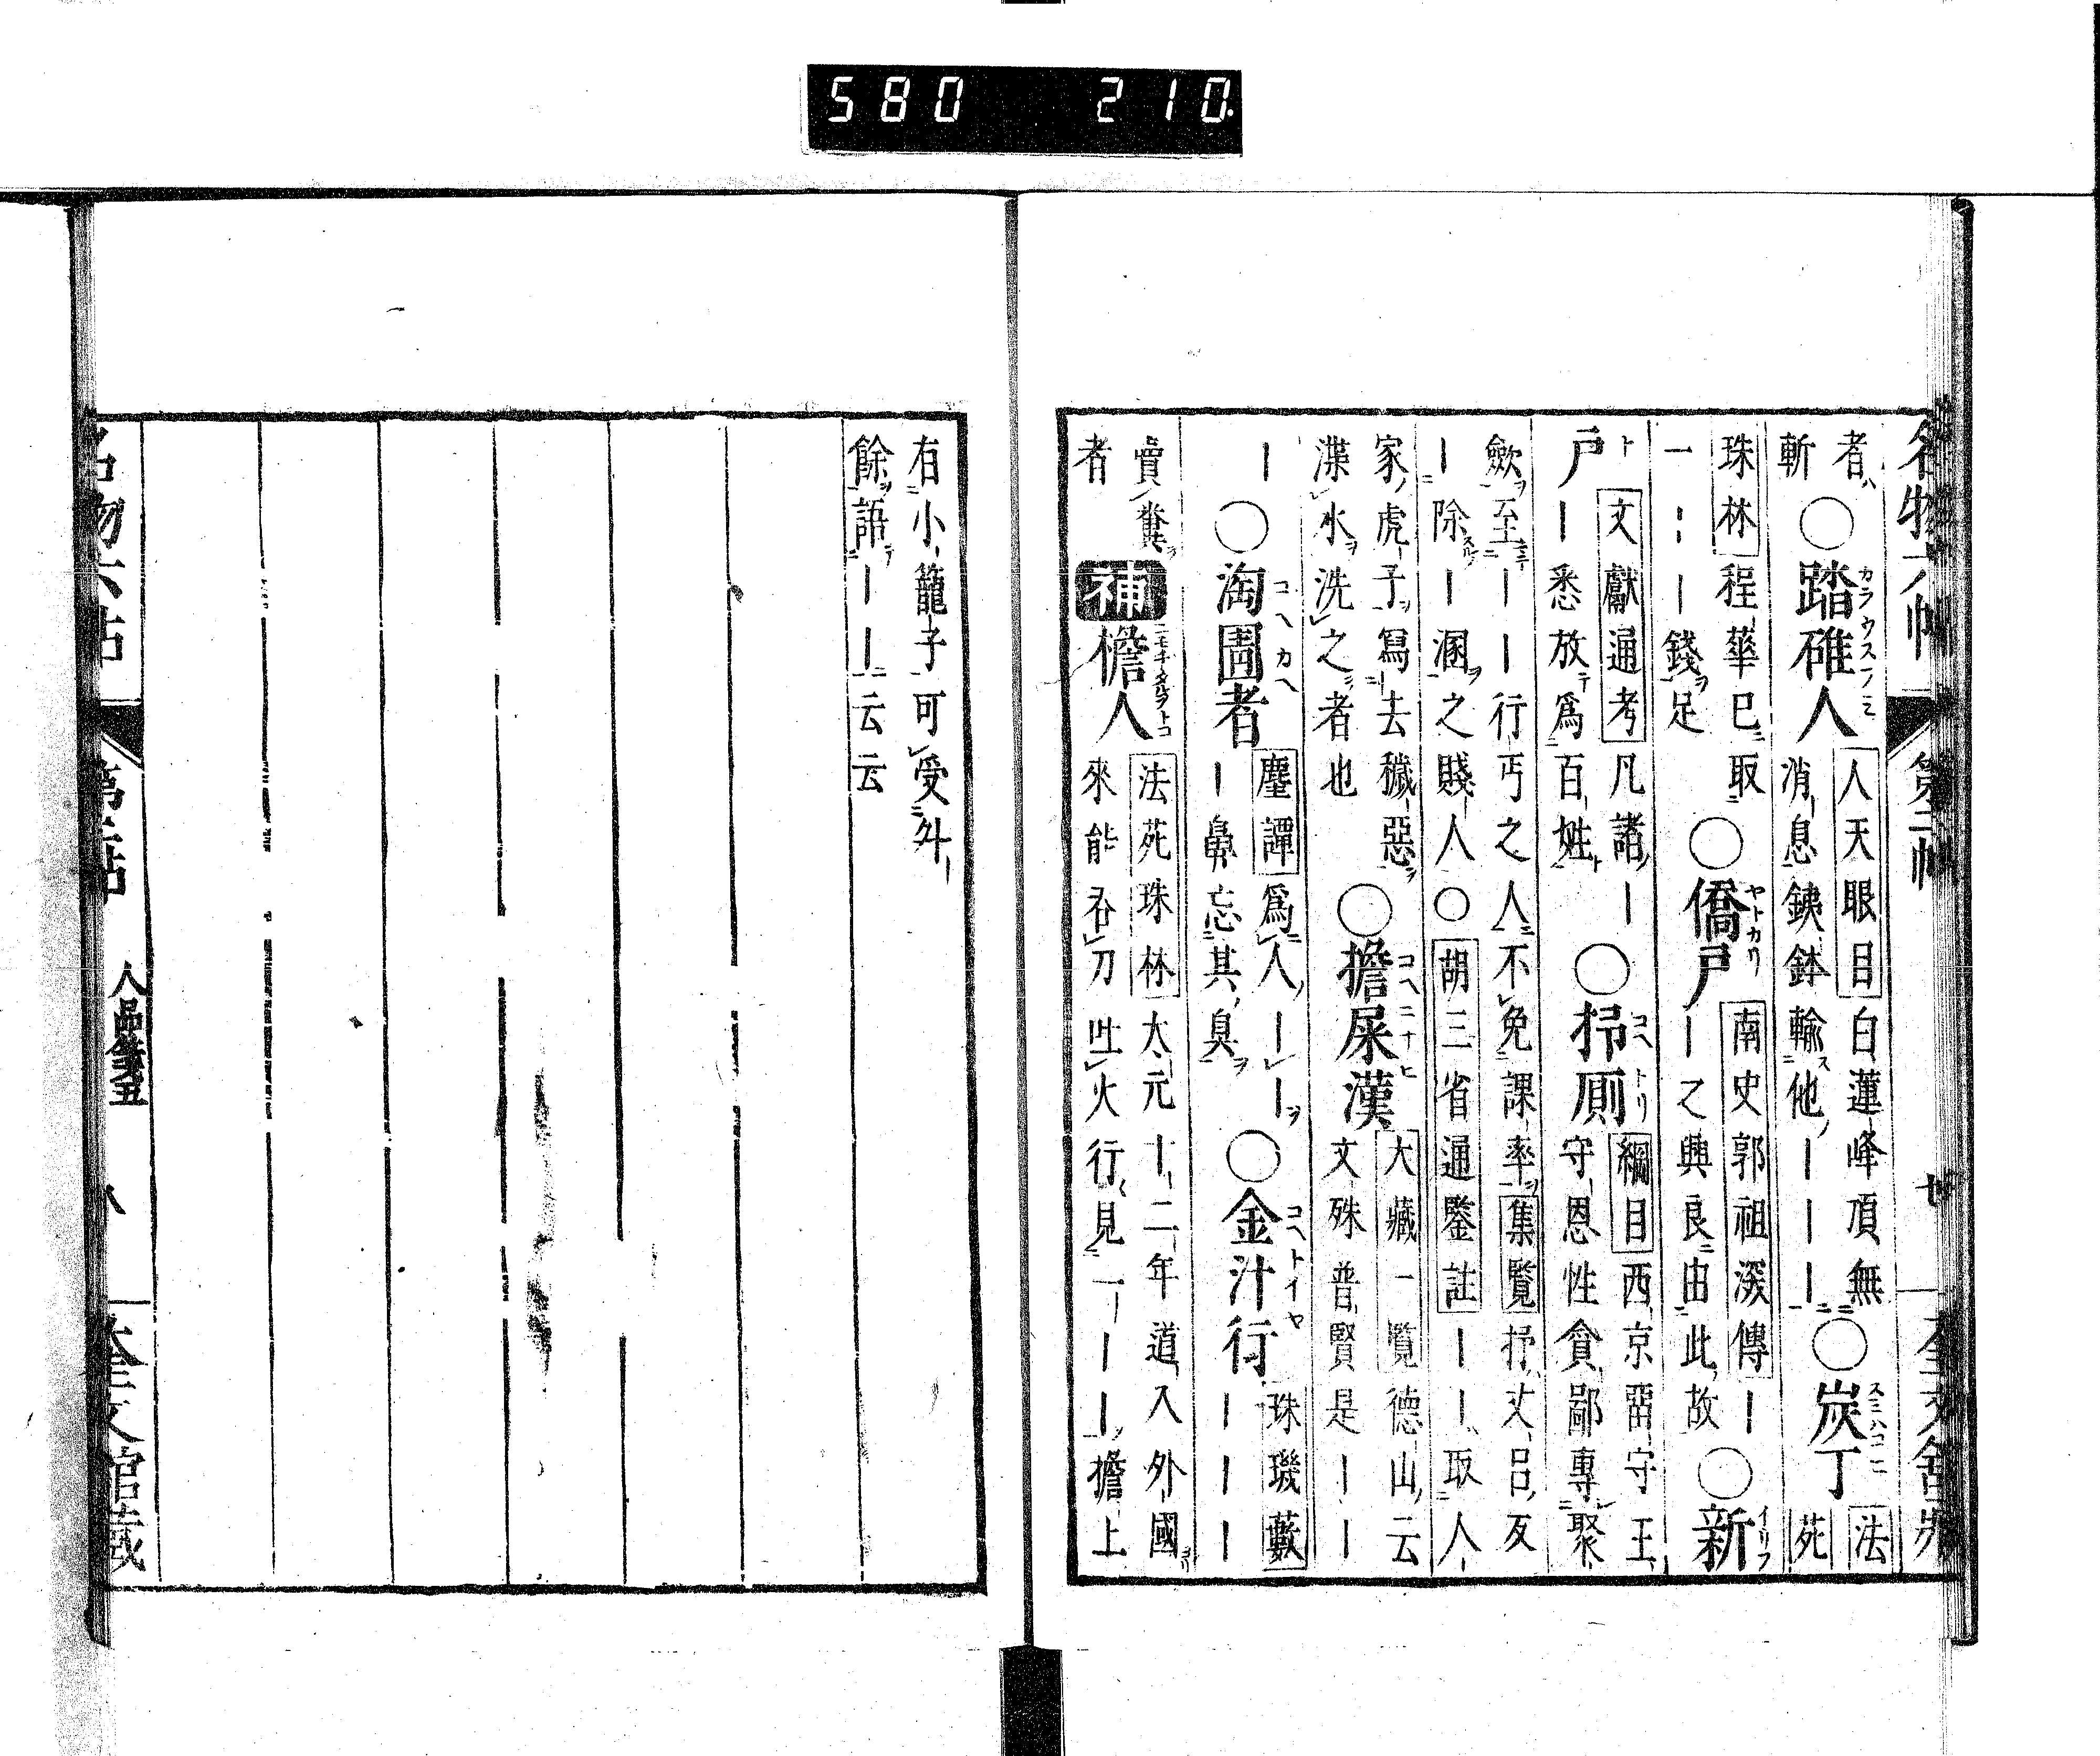 580 210
者
斬
○踏碓人
カラウスフミ
人天眼目白蓮峰頂無
消息鐵鉢輸他｜｜｜
○炭丁
法
苑
珠林程華巳取
一｜｜錢足
○僑戸
ヤトカリ
南史郭祖深傳｜
｜之興良由此故
○新
戸
文獻通考凡諸｜
｜悉放爲百姓
○扫厠
コヘトリ
綱目西京畱守王
守恩性貪鄙專聚
歛至｜｜行丐之人不免課率集覽抒丈呂反
｜除｜溷之賤人○胡三省通鑒註｜｜取人
家虎子寫去穢惡
渫水洗之者也
○擔屎漢
コヘニナヒ
大藏一覧德山云
文殊普賢是｜｜
｜
○淘圊者
コヘカヘ
塵譚爲人｜｜
｜鼻忘其臭
○金汁行
コヘトイヤ
珠璣藪
｜｜｜
賣糞
者
補
檐人
法苑珠林太元十二年道人外國
來能吞刀吐火行見一｜｜擔上
有小籠子可受外
餘語｜｜云云
人品箋五
八
奎文館藏